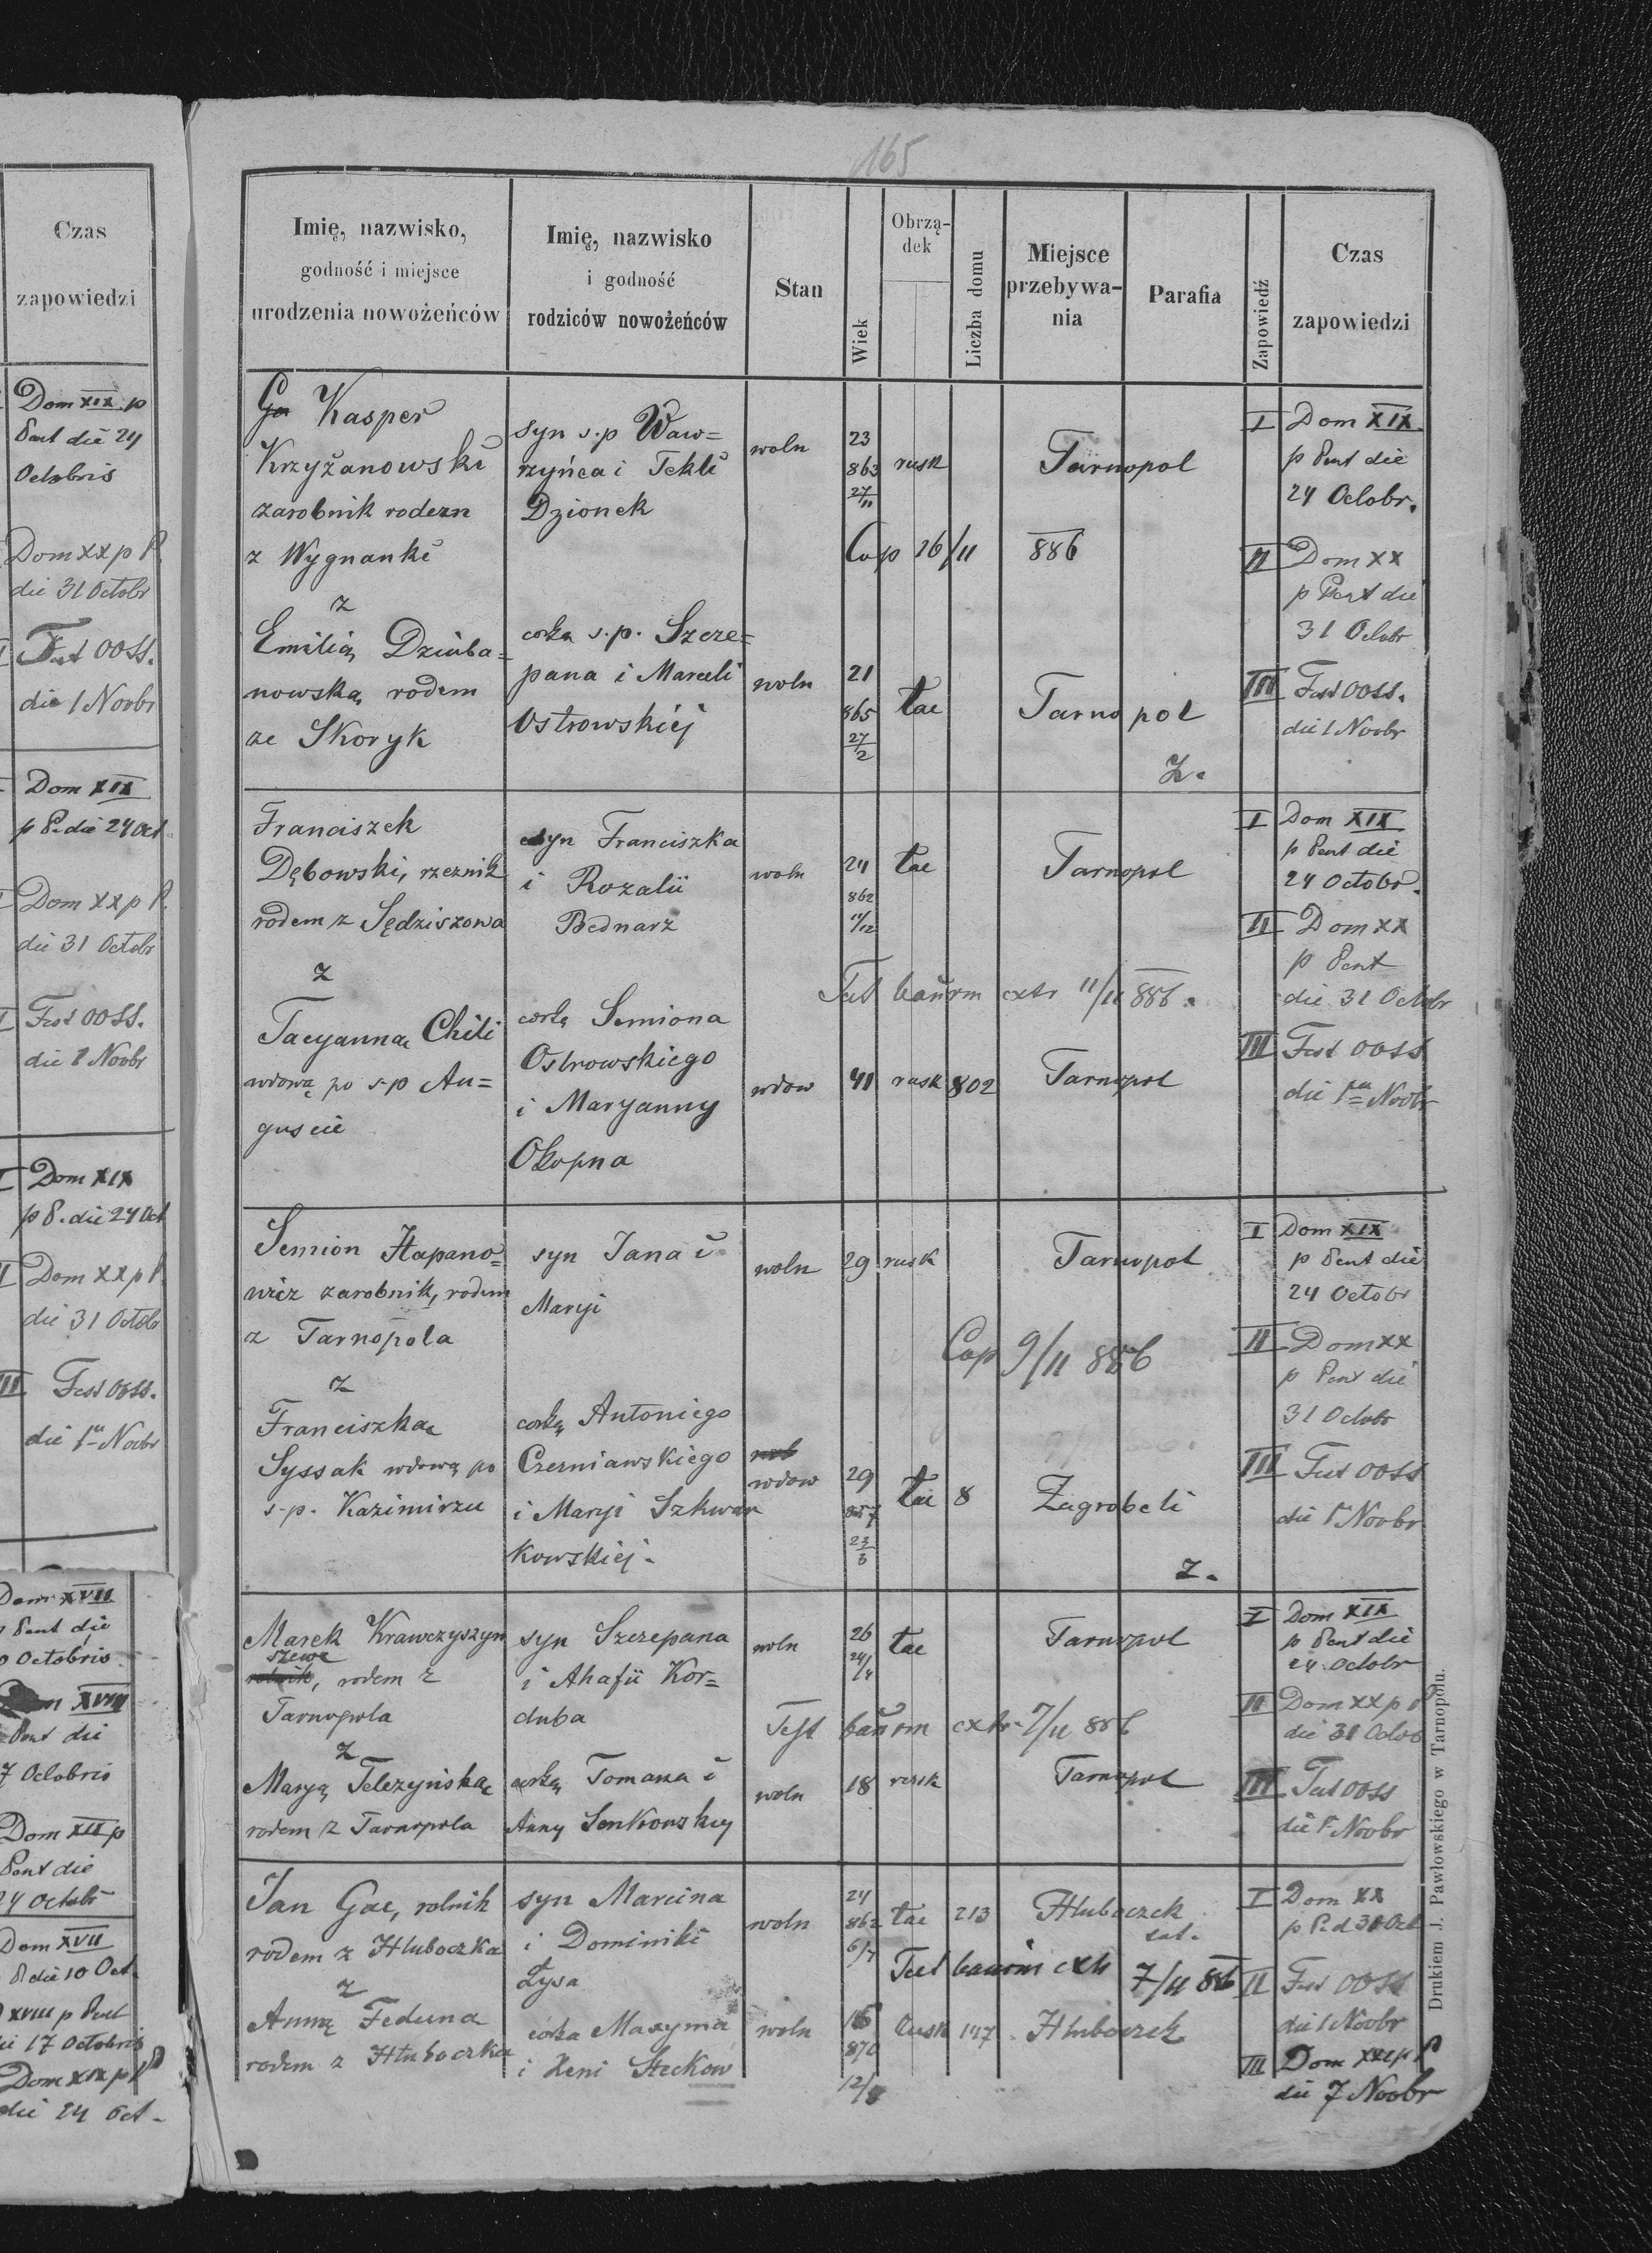 Czas
zapowiedzi
Dom XIX p
Pent die 24
Octobris
Dom XX p P
die 31 Octobr
Fest OOSS.
die 1 Novbr
Dom XIX
p P. die 24 Oct
Dom XX p P.
die 31 Octobr
Fest OOSS.
die 1 Novbr
I Dom XIX
p P. die 24 Oct
II Dom XX p P.
die 31 Octobr
III Fest OOSS.
die 1 Novbr
Dom XVII
Pent die
Octobris
XVIII
Pent die
7 Octobris
Dom XIX p
Pent die
24 Octobr
Dom XVII
P die 10 Oct.
XVIII p Pent
die 17 Octobris
Dom XIX p P
die 24 Oct.
165
Imię, nazwisko,
godność i miejsce
urodzenia nowożeńców
Imię, nazwisko
i godność
rodziców nowożeńców
Stan
Wiek
Obrzą-
dek
Liczba domu
Miejsce
przebywa-
nia
Parafia
Zapowiedź
Czas
zapowiedzi
Kasper
Krzyżanowski
zarobnik rodem
z Wygnanki
syn s.p Waw=
rzyńca i Tekli
Dzionek
woln
23
863
27/11
rusk
Tarnopol
Cop 26/11 886
I Dom XIX
p Pent die
24 Octobr.
II Dom XX
p Pent die
31 Octobr
z
Emilią Dziuba=
nowską rodem
ze Skoryk
corka s.p. Szcze=
pana i Marceli
Ostrowskiéj
woln
21
865
27/2
łac
Tarnopol
Z.
III Fest OOSS.
die 1 Novbr
Franciszek
Dębowski, rzeznik
rodem z Sędziszowa
syn Franciszka
i Rozalii
Bednarz
woln
24
862
11/12
łac
Tarnopol
I Dom XIX
p Pent die
24 Octobr.
II Dom XX
p Pent
die 31 Octobr
Test bannrm extr 11/11 886.
z
Tacyanną Chili
wdową po s.p Au=
guscie
corką Semiona
Ostrowskiego
i Maryanny
Okopna
wdow
41
rusk
802
Tarnopol
III Fest OOSS
die 1 Novbr
Semion Hapano=
wicz zarobnik, rodem
z Tarnopola
syn Jana i
Maryi
woln
29
rusk
Tarnopol
Cop 9/11 886
I Dom XIX
p Pent die
24 Octobr
II Dom XX
p Pent die
31 Octobr
z
Franciszką
Syssak wdową po
s.p. Kazimirzu
corką Antoniego
Czerniawskiego
i Maryi Szkwar
kowskiej.
wdow
29
857
23/3
łac
8
Zagrobeli
Z.
III Fest OOSS
die 1 Novbr
Marek Krawczyszyn
szewc
rolnik, rodem z
Tarnopola
syn Szczepana
i Ahafii Kor=
duba
woln
26
24/4
łac
Tarnopol
Test bannrm extr. 7/11 886
I Dom XIX
p Pent die
24 Octobr
II Dom XX p P
die 31 Octob
z
Maryą Telezyńską
rodem z Tarnopola
corką Tomasza i
Anny Senkowskiej
woln
18
rusk
Tarnopol
III Fest OOSS
die 1 Novbr
Jan Gac, rolnik
rodem z Hluboczka
syn Marcina
i Dominiki
Łysa
woln
24
862
6/7
łac
213
Hluboczek
Test bannrm extr 7/11 886
I Dom XX
p P. d 31 Oct
II Fest OOSS
die 1 Novbr
z
Anną Feduna
rodem z Hluboczka
corka Maxyma
i Xeni Steckow
woln
16
870
12/8
rusk
147
Hluboczek
III Dom XXI p P
die 7 Novbr
Drukiem J. Pawłowskiego w Tarnopolu.